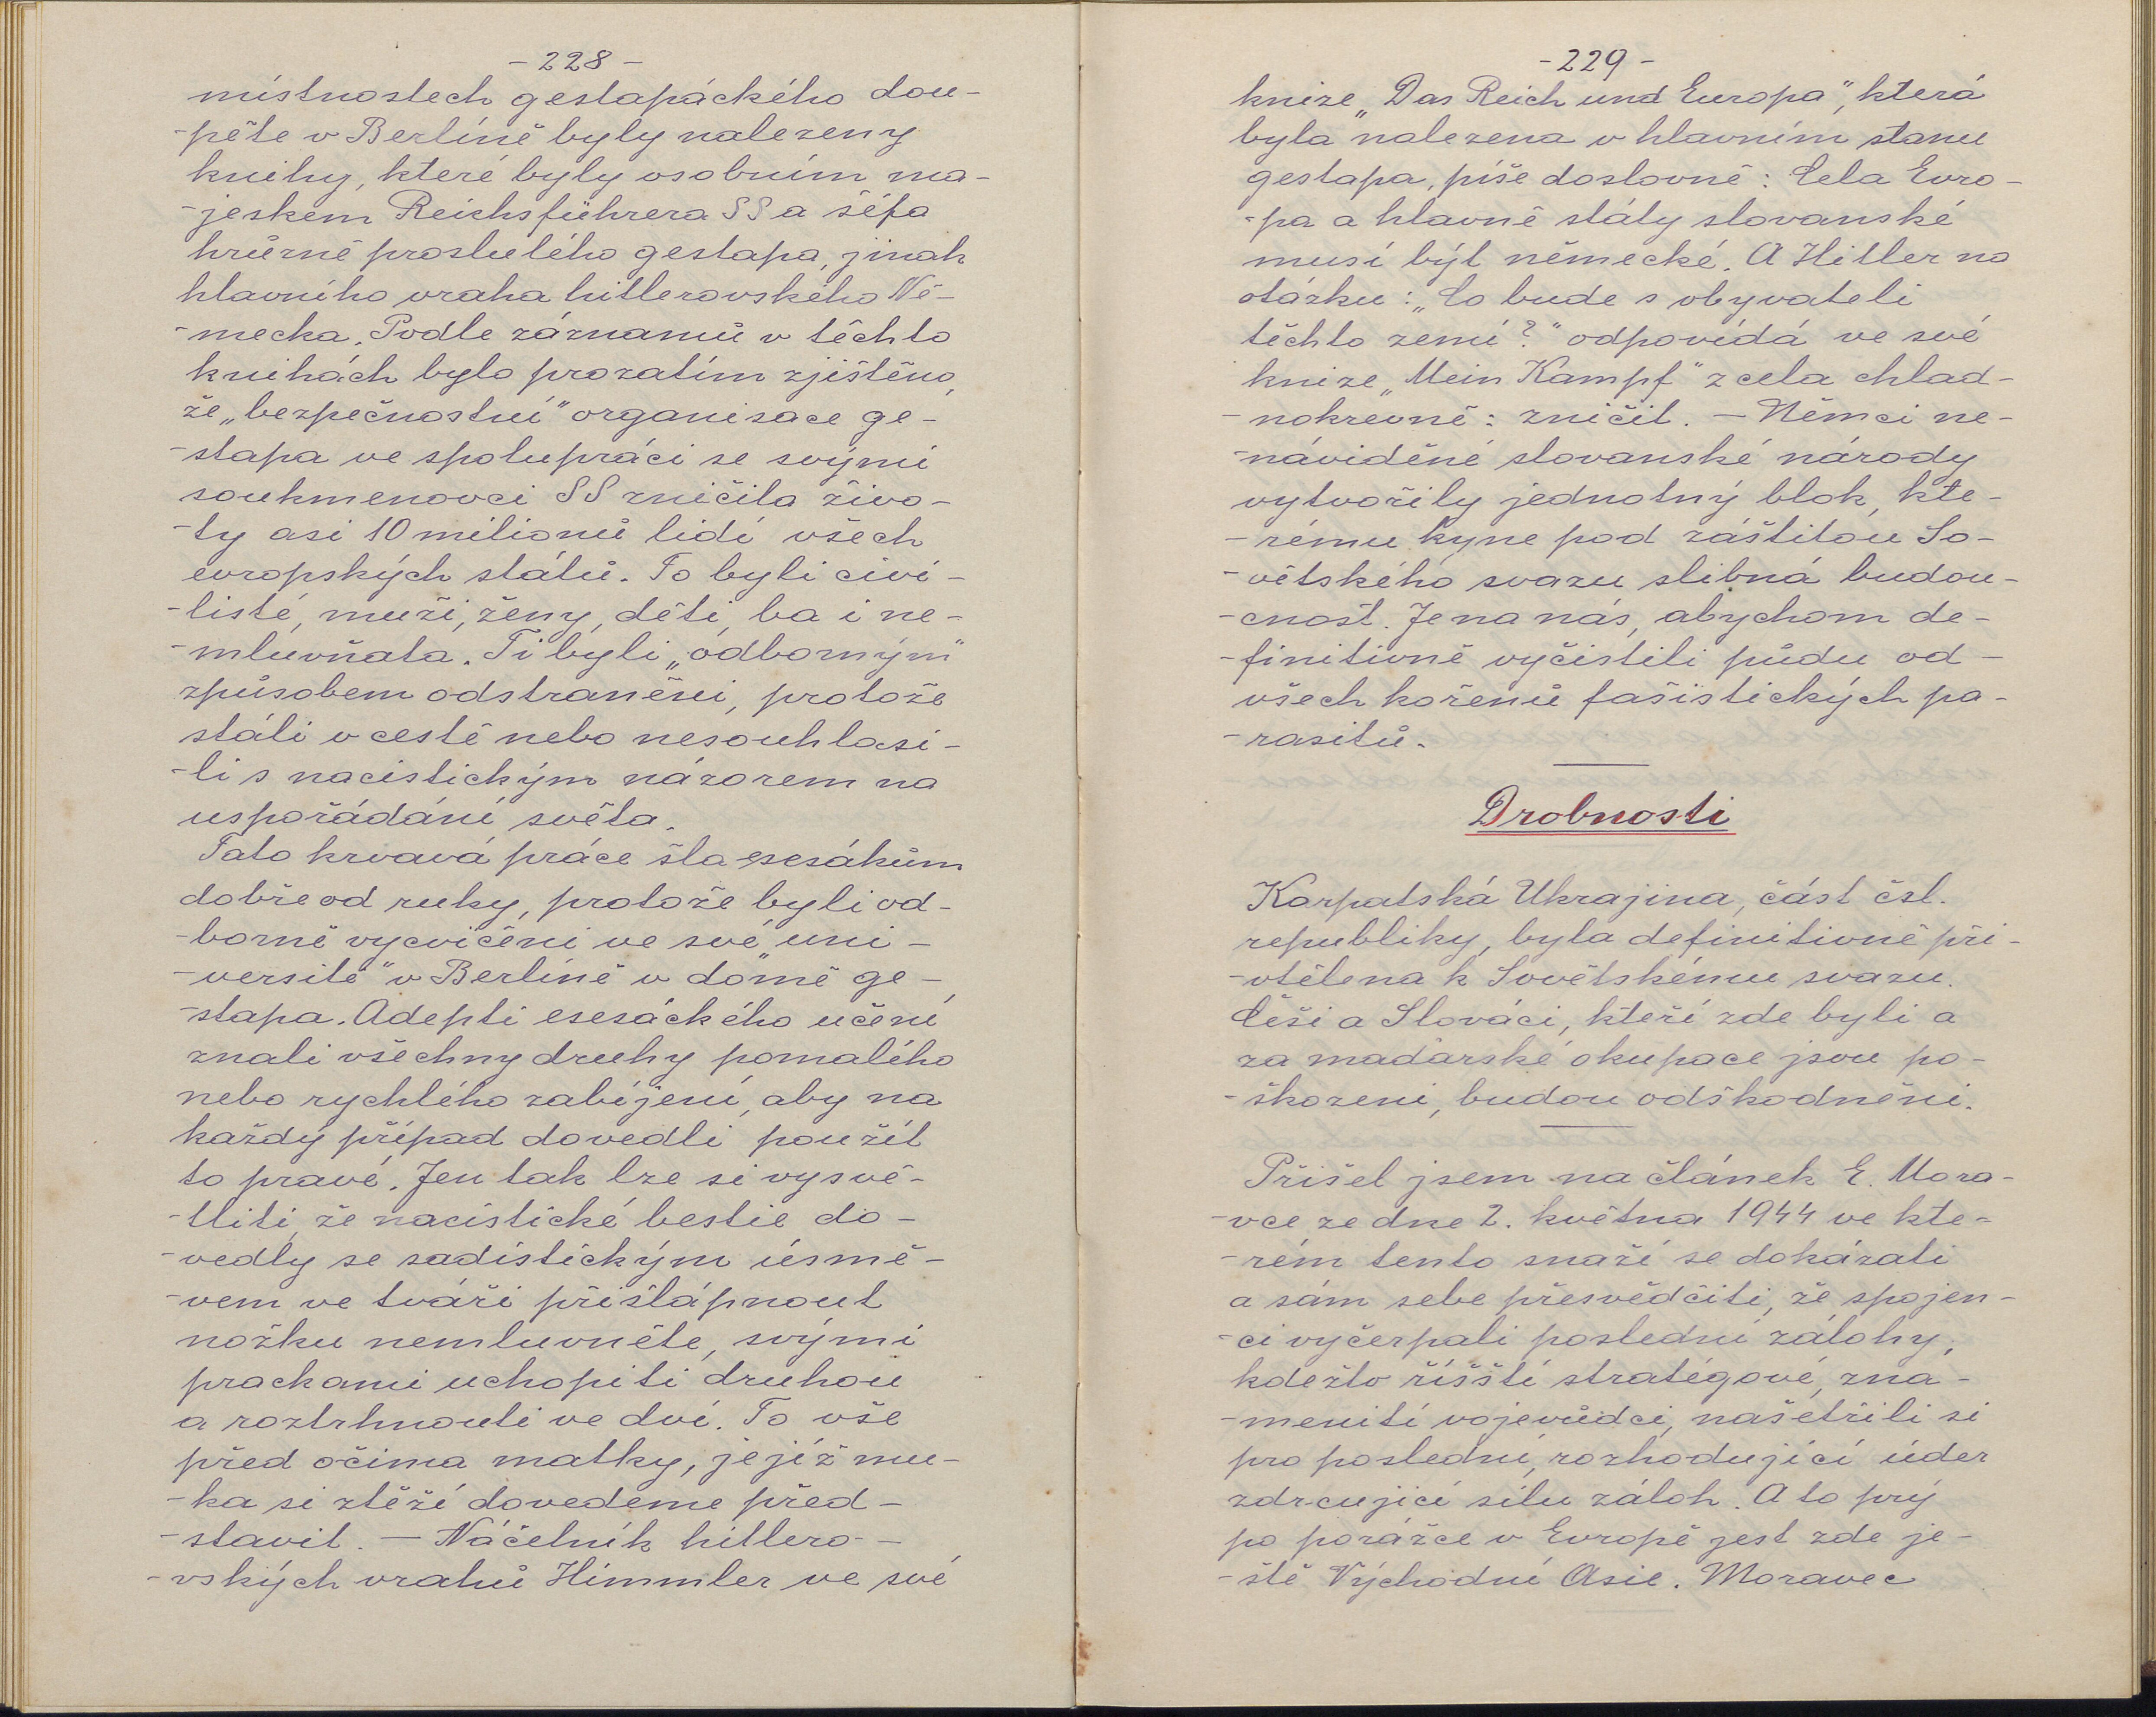 - 228 -
místnostech gestapáckého dou-
-pěte v Berlíně byly nalezeny
knihy, které byly osobním ma-
-jeskem Reichsführera SS a šéfa
hrůzně proslulého gestapa, jinak
hlavního vraha hitlerovského Ně-
-mecka. Podle záznamů v těchto
knihách bylo prozatím zjištěno,
že „bezpečnostní" organisace ge-
-stapa ve spolupráci se svými
soukmenovci SS zničila živo-
-ty asi 10 milionů lidí všech
evropských států. To byli civi-
-listé, muži, ženy, děti, ba i ne-
-mluvňata. Ti byli „odborným"
způsobem odstraněni, protože
stáli v cestě nebo nesouhlasi-
-li s nacistickým názorem na
uspořádání světa.
Tato krvavá práce šla esesákům
dobře od ruky, protože byli od-
-borně vycvičeni ve své „uni-
-versitě" v Berlíně v domě ge-
-stapa. Adepti esesáckého učení
znali všechny druhy pomalého
nebo rychlého zabíjení, aby na
každý případ dovedli použít
to pravé. Jen tak lze si vysvě-
-tliti, že nacistické bestie do-
-vedly se sadistickým úsmě-
-vem ve tváři přišlápnout
nožku nemluvněte, svými
prackami uchopiti druhou
a roztrhnouti ve dví. To vše
před očima matky, jejíž mu-
-ka si ztěží dovedeme před-
-stavit. — Náčelník hitlero-
-vských vrahů Himmler ve své
- 229 -
knize „Das Reich und Europa", která
byla nalezena v hlavním stanu
gestapa, píše doslovně: Celá Evro-
-pa a hlavně státy slovanské
musí být německé. A Hitler na
otázku: „Co bude s obyvateli
těchto zemí?" odpovídá ve své
knize „Mein Kampf" zcela chlad-
-nokrevně: zničit. — Němci ne-
-náviděné slovanské národy
vytvořily jednotný blok, kte-
-rému kyne pod záštitou So-
-větského svazu slibná budou-
-cnost. Je na nás, abychom de-
-finitivně vyčistili půdu od
všech kořenů fašistických pa-
-rasitů.
Drobnosti
Karpatská Ukrajina, část čsl.
republiky, byla definitivně při-
-vtělena k Sovětskému svazu.
Češi a Slováci, kteří zde byli a
za maďarské okupace jsou po-
-škozeni, budou odškodněni.
Přišel jsem na článek E. Mora-
-vce ze dne 2. května 1944 ve kte-
-rém tento snaží se dokázati
a sám sebe přesvědčiti, že spojen-
-ci vyčerpali poslední zálohy,
kdežto říšští stratégové, zna-
-menití vojevůdci, našetřili si
pro poslední, rozhodující úder
zdrcující sílu záloh. A to prý
po porážce v Evropě jest zde je-
-ště Východní Asie. Moravec